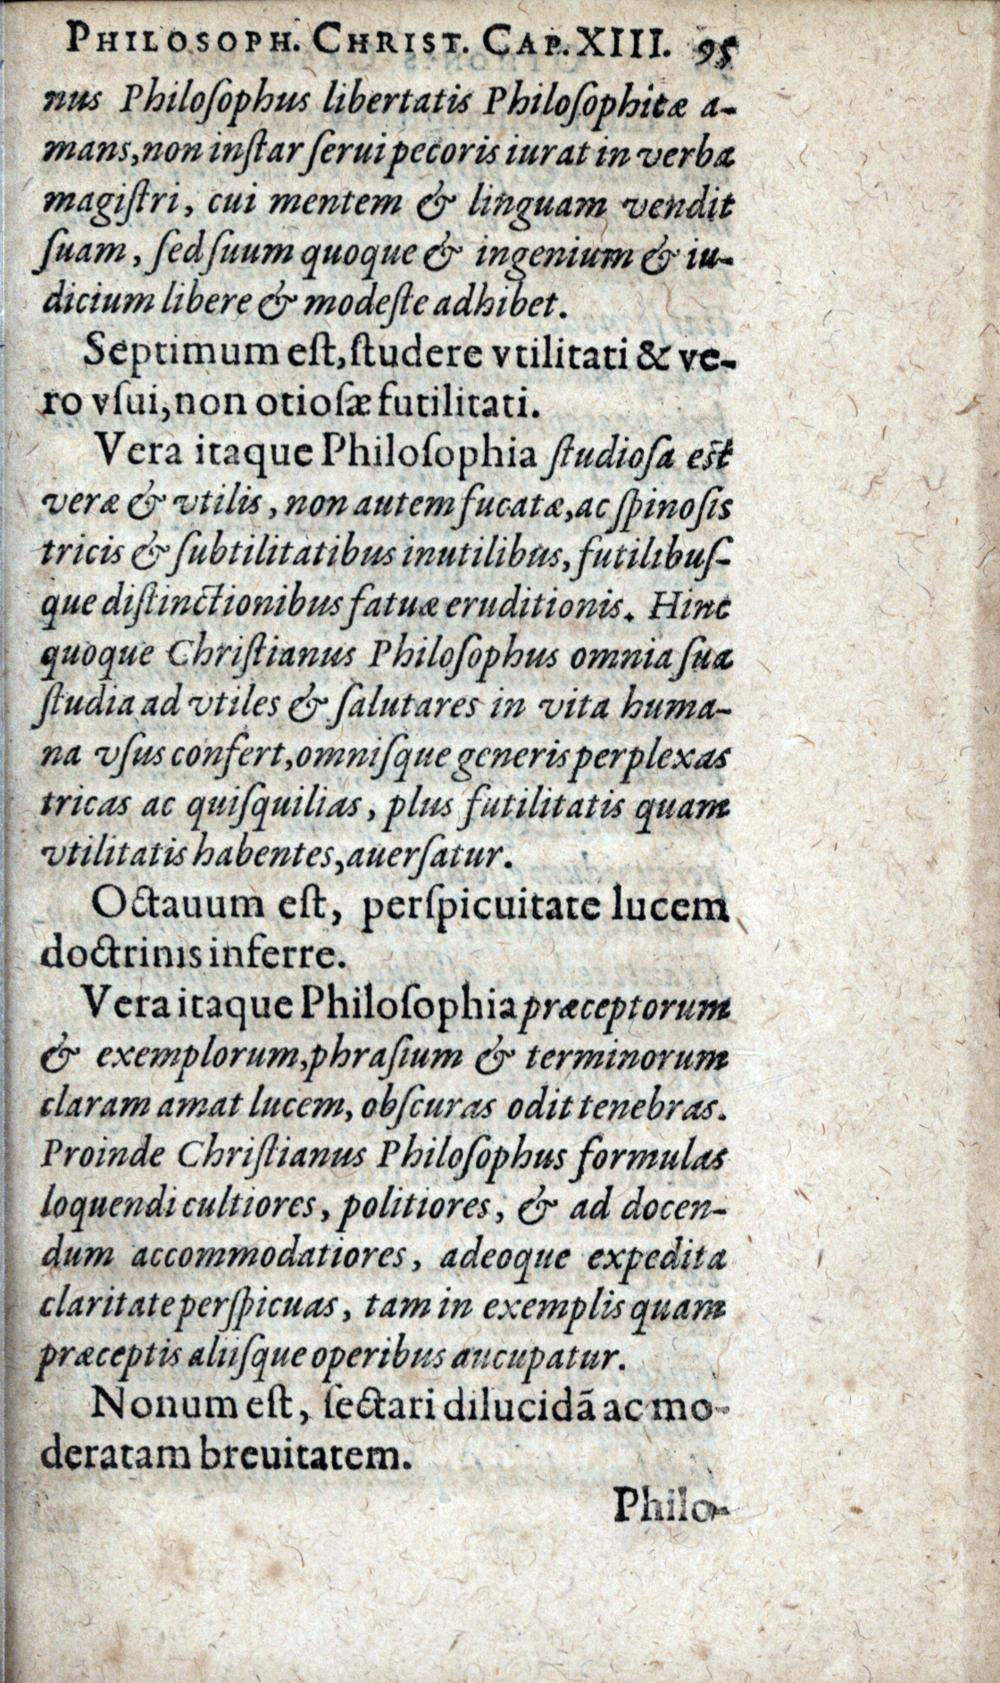 PHILOSOPH. CHRIST. CAP. XIII. 95
nus Philoſophus libertatis Philoſophicæ a-
mans, non inſtar ſerui pecoris iurat in verba
magiſtri, cui mentem & linguam vendit
ſuam, ſed ſuum quoque & ingenium & iu-
dicium libere & modeſte adhibet.
Septimum eſt, ſtudere vtilitati & ve-
ro vſui, non otioſæ futilitati.
Vera itaque Philoſophia ſtudioſa eſt
veræ & vtilis, non autem fucatæ, ac ſpinoſis
tricis & ſubtilitatibus inutilibus, futilibuſ-
que diſtinctionibus fatuæ eruditionis. Hinc
quoque Chriſtianus Philoſophus omnia ſua
ſtudia ad vtiles & ſalutares in vita huma-
na vſus confert, omniſque generis perplexas
tricas ac quiſquilias, plus futilitatis quam
vtilitatis habentes, auerſatur.
Octauum eſt, perſpicuitate lucem
doctrinis inferre.
Vera itaque Philoſophia præceptorum
& exemplorum, phraſium & terminorum
claram amat lucem, obſcuras odit tenebras.
Proinde Chriſtianus Philoſophus formulas
loquendi cultiores, politiores, & ad docen-
dum accommodatiores, adeoque expedita
claritate perſpicuas, tam in exemplis quam
præceptis aliiſque operibus aucupatur.
Nonum eſt, ſectari dilucidã ac mo-
deratam breuitatem.
Philo-